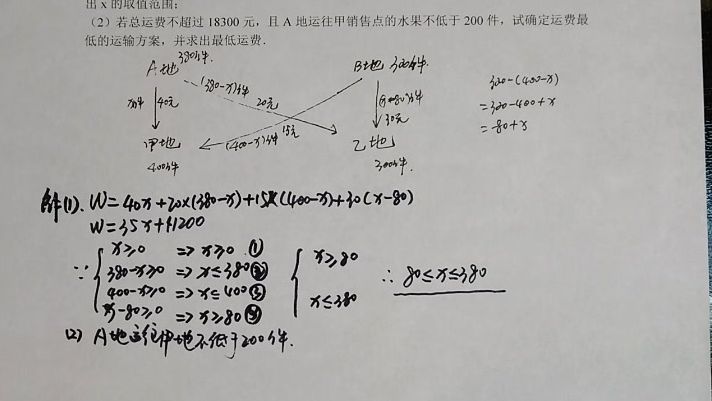 出 x 的取值范围；
（2）若总运费不超过 18300 元，且 A 地运往甲销售点的水果不低于 200 件，试确定运费最
低的运输方案，并求出最低运费．
A地 380件.
B地 300件.
(380-x)件
x件 40元
20元
(x-80)件
30元
15元
(400-x)件
甲地
400件
乙地
300件.
300-(400-x)
=300-400+x
=-80+x
解(1). W=40x+20×(380-x)+15×(400-x)+30(x-80)
W=35x+11200
∵ { x≥0 => x≥0 ①
380-x≥0 => x≤380 ②
400-x≥0 => x≤400 ③
x-80≥0 => x≥80 ④
{ x≥80
x≤380
∴ 80≤x≤380
(2) A地运往甲地不低于200件.